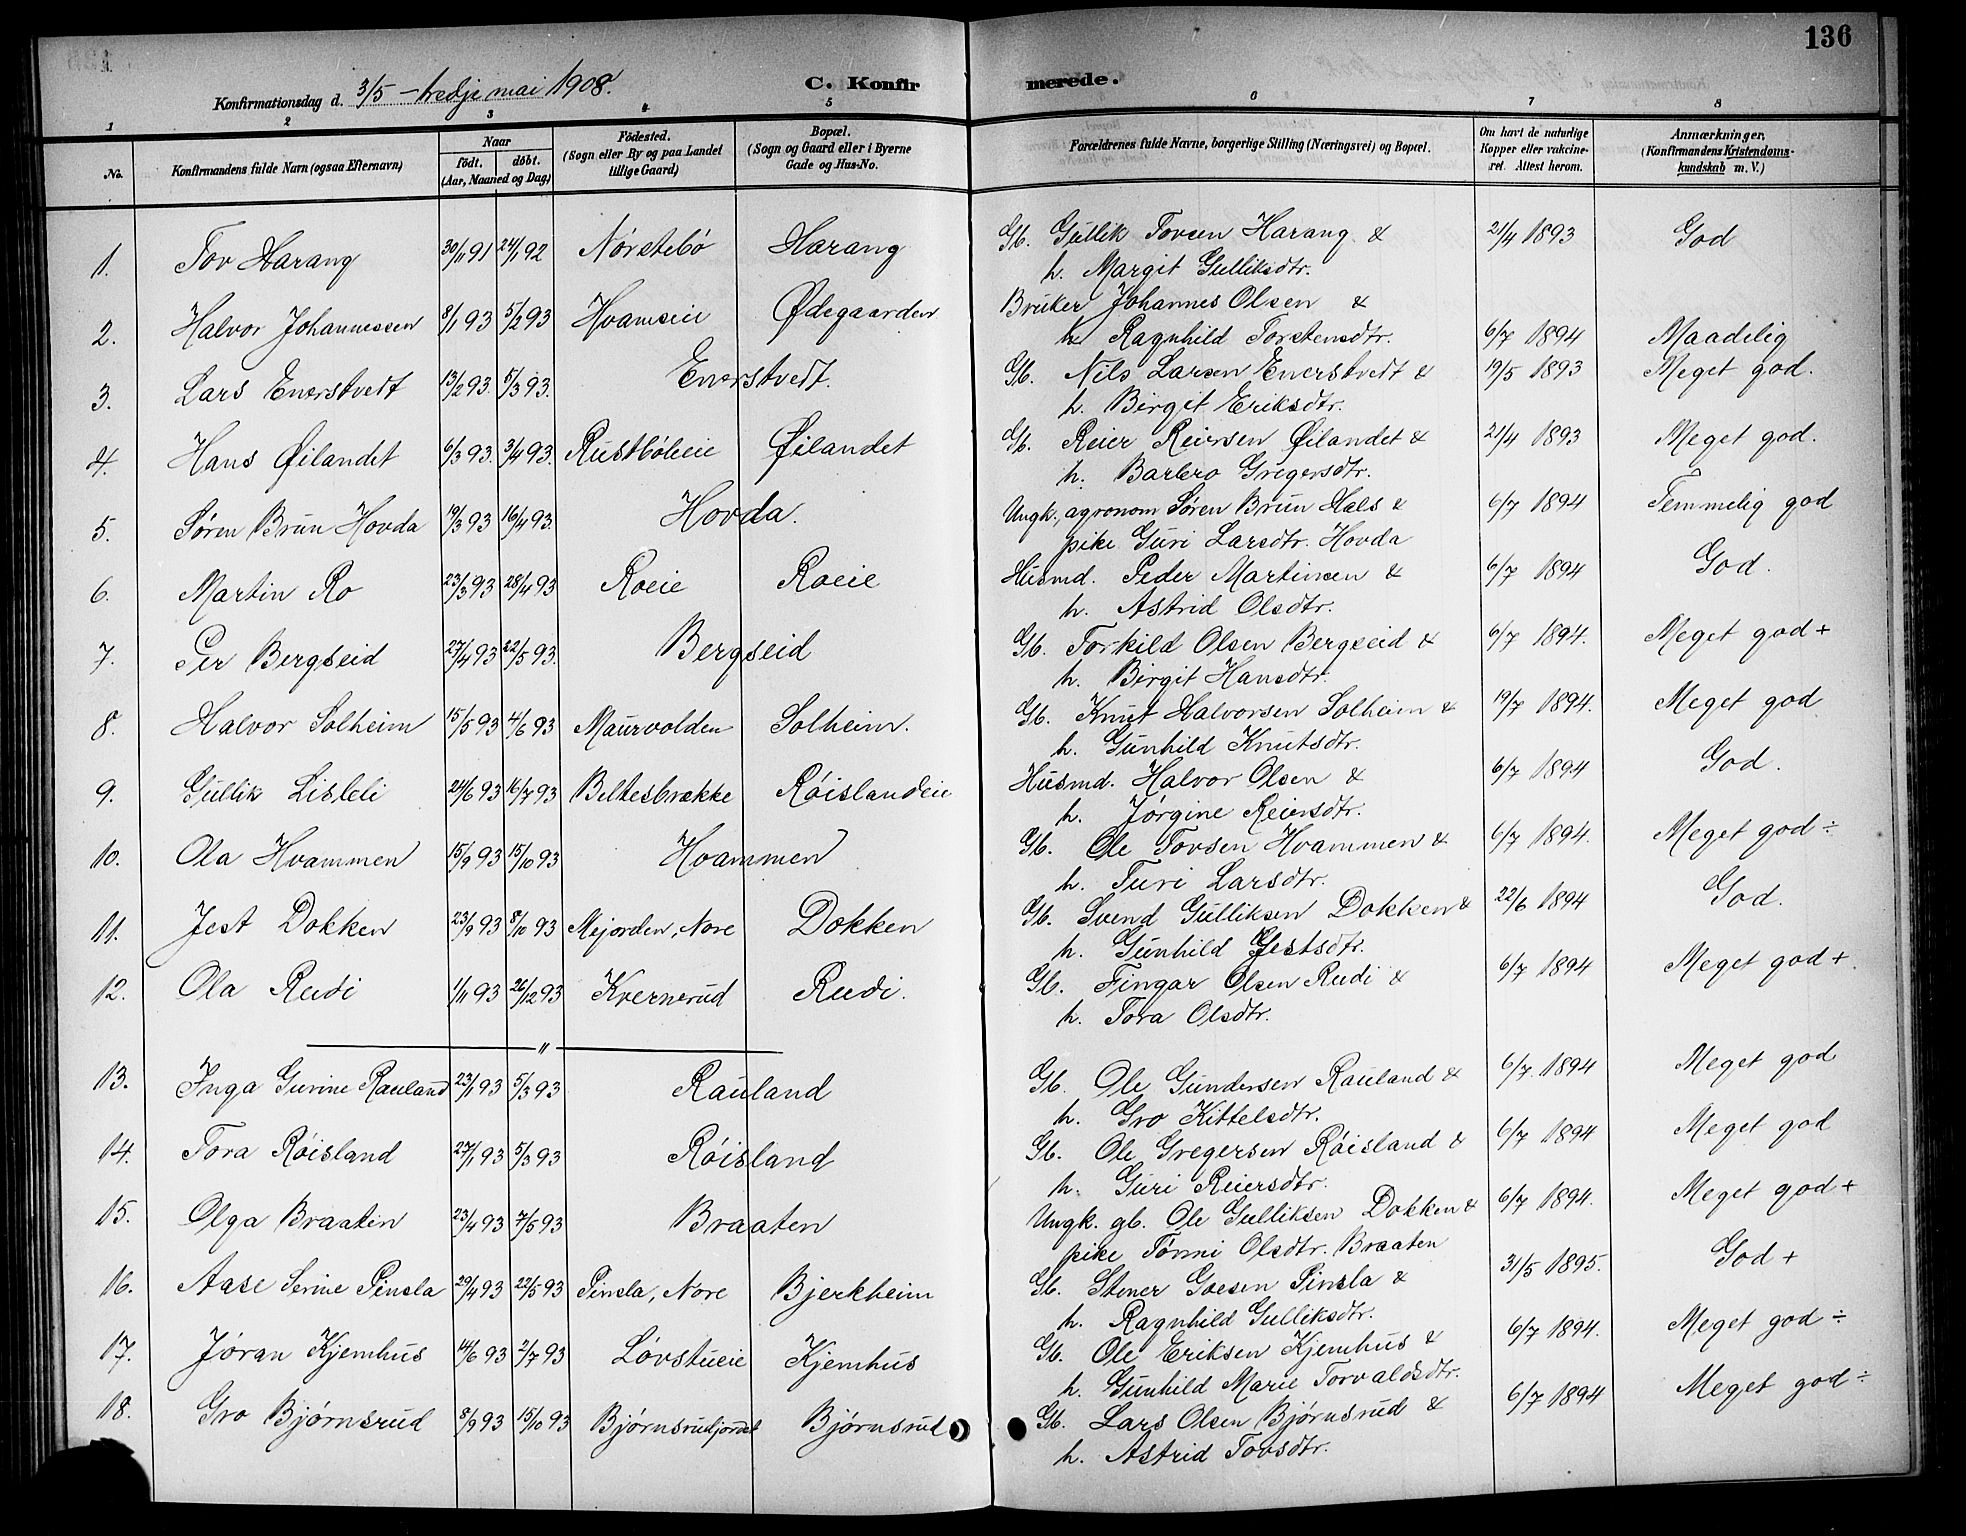 136
Konfirmationsdag d. 3/5 - tredje mai 1908. C. Konfirmerede.
1 2 3 4 5 6 7 8
No. Konfirmandens fulde Navn (ogsaa Efternavn) Naar født. døbt. (Aar, Maaned og Dag) Fødested. (Sogn eller By og paa Landet tillige Gaard) Bopæl. (Sogn og Gaard eller i Byerne Gade og Hus-No. Forældrenes fulde Navne, borgerlige Stilling (Næringsvei) og Bopæl. Om havt de naturlige Kopper eller vakcineret. Attest herom. Anmærkninger. (Konfirmandens Kristendomskundskab m. V.)
1. Tov Harang 30/11 91 24/1 92 Nørstebø Harang Gb. Gullik Tovsen Harang & 21/4 1893 God
h. Margit Gulliksdtr.
2. Halvor Johannessen 8/1 93 5/2 93 Hvamseie Ødegaarden Bruker Johannes Olsen &
h. Ragnhild Torstensdtr. 6/7 1894 Maadelig
3. Lars Enerstvedt 13/2 93. 5/3 93. Enerstvedt. Gb. Nils Larsen Enerstvedt & 19/5 1893 Meget god.
h. Birgit Eriksdtr.
4. Hans Øilandet 6/3 93. 3/4 93. Rustbøleie Øilandet Gb. Reier Reiersen Øilandet & 21/4 1893 Meget god.
h. Barbro Gregersdtr.
5. Søren Brun Hovda 19/3 93 16/4 93. Hovda. Ungk., agronom Søren Brun Hals & 6/7 1894 Temmelig god
pike Guri Larsdtr. Hovda
6. Martin Ro 23/3 93 28/4 93 Roeie Roeie Husmd. Peder Martinsen & 6/7 1894 God.
h. Astrid Olsdtr.
7. Per Bergseid 27/4 93 22/5 93. Bergseid Gb. Torkild Olsen Bergseid & 6/7 1894. Meget god +
h. Birgit Hansdtr.
8. Halvor Solheim 15/5 93 4/6 93 Maurvolden Solheim. Gb. Knut Halvorsen Solheim & 19/7 1894. Meget god
h. Gunhild Knutsdtr.
9. Gullik Lisleli 24/6 93 16/7 93 Beltesbrække Røislandeie Husmd. Halvor Olsen & 6/7 1894 God.
h. Jørgine Reiersdtr.
10. Ola Hvammen 15/9 93 15/10 93 Hvammen Gb. Ole Tovsen Hvammen & 6/7 1894. Meget god ÷
h. Turi Larsdtr.
11. Jest Dokken 23/9 93 8/10 93 Mejorden, Nore Dokken Gb. Svend Gulliksen Dokken & 22/6 1894 God.
h. Gunhild Jestsdtr.
12. Ola Rudi 1/11 93 26/12 93 Kvernerud Rudi. Gb. Fingar Olsen Rudi & 6/7 1894 Meget god +.
h. Tora Olsdtr.
"
13. Inga Gurine Rauland 23/1 93 5/3 93 Rauland Gb. Ole Gundersen Rauland & 6/7. 1894 Meget god
h. Gro Kittelsdtr.
14. Tora Røisland 27/1 93 5/3 93 Røisland Gb. Ole Gregersen Røisland & 6/7 1894 Meget god
h. Guri Reiersdtr.
15. Olga Braaten 23/4 93 7/5 93 Braaten Ungk. gb. Ole Gulliksen Dokken & 6/7 1894. Meget god +
pike Tønni Olsdtr. Braaten
16. Aase Serine Sinsla 29/4 93 22/5 93 Sinsla, Nore Bjerkheim Gb. Stener Goesen Sinsla & 31/5 1895. God +
h. Ragnhild Gulliksdtr.
17. Jøran Kjemhus 14/6 93 2/7 93 Løvstueie Kjemhus Gb. Ole Eriksen Kjemhus & 6/7 1894. Meget god ÷
h. Gunhild Marie Torvaldsdtr.
18. Gro Bjørnsrud 8/9 93 15/10 93 Bjørnsrudjordet Bjørnsrud Gb. Lars Olsen Bjørnsrud & 6/7 1894 Meget god ÷
h. Astrid Tovsdtr.